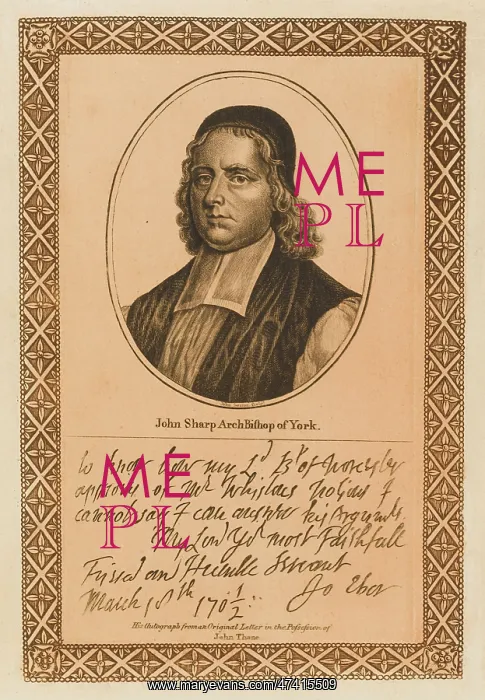 ME
PL
John Sharp ArchBiſhop of York.
to know how my Ld Bp of Worcester
of Mr Whistons Notions I
cannot say I can answer his Arguments
My Lord Yr most Faithfull
Friend and Humble Servant
Jo Ebor
March 18th 170½
ME
PL
His Autograph from an Original Letter in the Poſseſsion of
John Thane
www.maryevans.com/47415509